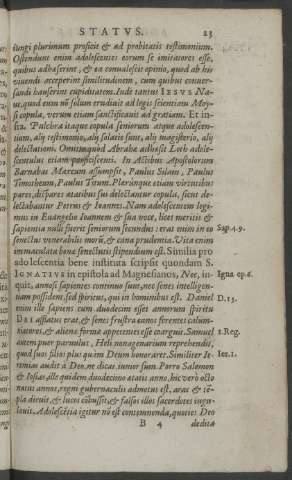 STATVS. 23
iungi plurimum proficit & ad probitatis testimonium.
Ostendunt enim adolescentes eorum se imitatores esse,
quibus adhæserint, & ea conualescit opinio, quod ab his
viuendi acceperint similitudinem, cum quibus conuer-
sandi hauserint cupiditatem. Inde tantus IESVS Na-
ue, quod eum nō solum erudiuit ad legis scientiam Moy-
si copula, verum etiam sanctificauit ad gratiam. Et in-
fra. Pulchra itaque copula seniorum atque adolescen-
tium, alij testimonio, alij solatio sunt, alij magisterio, alij
delectationi. Omitto quòd Abrahæ adhæsit Loth adole-
scentulus etiam proficiscenti. In Actibus Apostolorum
Barnabas Marcum assumpsit, Paulus Silam, Paulus
Timotheum, Paulus Titum. Plerunque etiam virtutibus
pares, dispares ætatibus sui delectantur copula, sicut de-
lectabantur Petrus & Ioannes. Nam adolescentem legi-
mus in Euangelio Ioannem & sua voce, licet meritis &
sapientia nulli fuerit seniorum secundus: erat enim in eo
Sap. 4.9.
senectus venerabilis morū, & cana prudentia. Vita enim
immaculata bonæ senectutis stipendium est. Similia pro
adolescentia bene instituta scripsit quondam S.
IGNATIVS in epistola ad Magnesianos, Nec, in-
Igna ep. 6.
quit, annosi sapientes continuo sunt, nec senes intelligen-
tiam possident, sed spiritus, qui in hominibus est. Daniel
D. 13.
enim ille sapiens cum duodecim esset annorum spiritu
DEI afflatus erat, & senes frustra canos ferentes calum-
niatores, & alienæ formæ appetentes esse arguit. Samuel
1. Reg.
autem puer paruulus, Heli nonagenarium reprehendit,
quod suos filios plus quàm Deum honoraret. Similiter Ie-
Ier. 1.
remias audit à Deo, ne dicas, iunior sum. Porro Salomon
& Iosias, ille quidem duodecimo ætatis anno, hic verò octo
natus annos, regni gubernaculis admotus est, aras & tē-
pla diruit, & lucos cōbussit, & falsos illos sacerdotes iugu-
lauit. Adolescētia igitur nō est contemnenda, quoties Deo
B 4 dedica